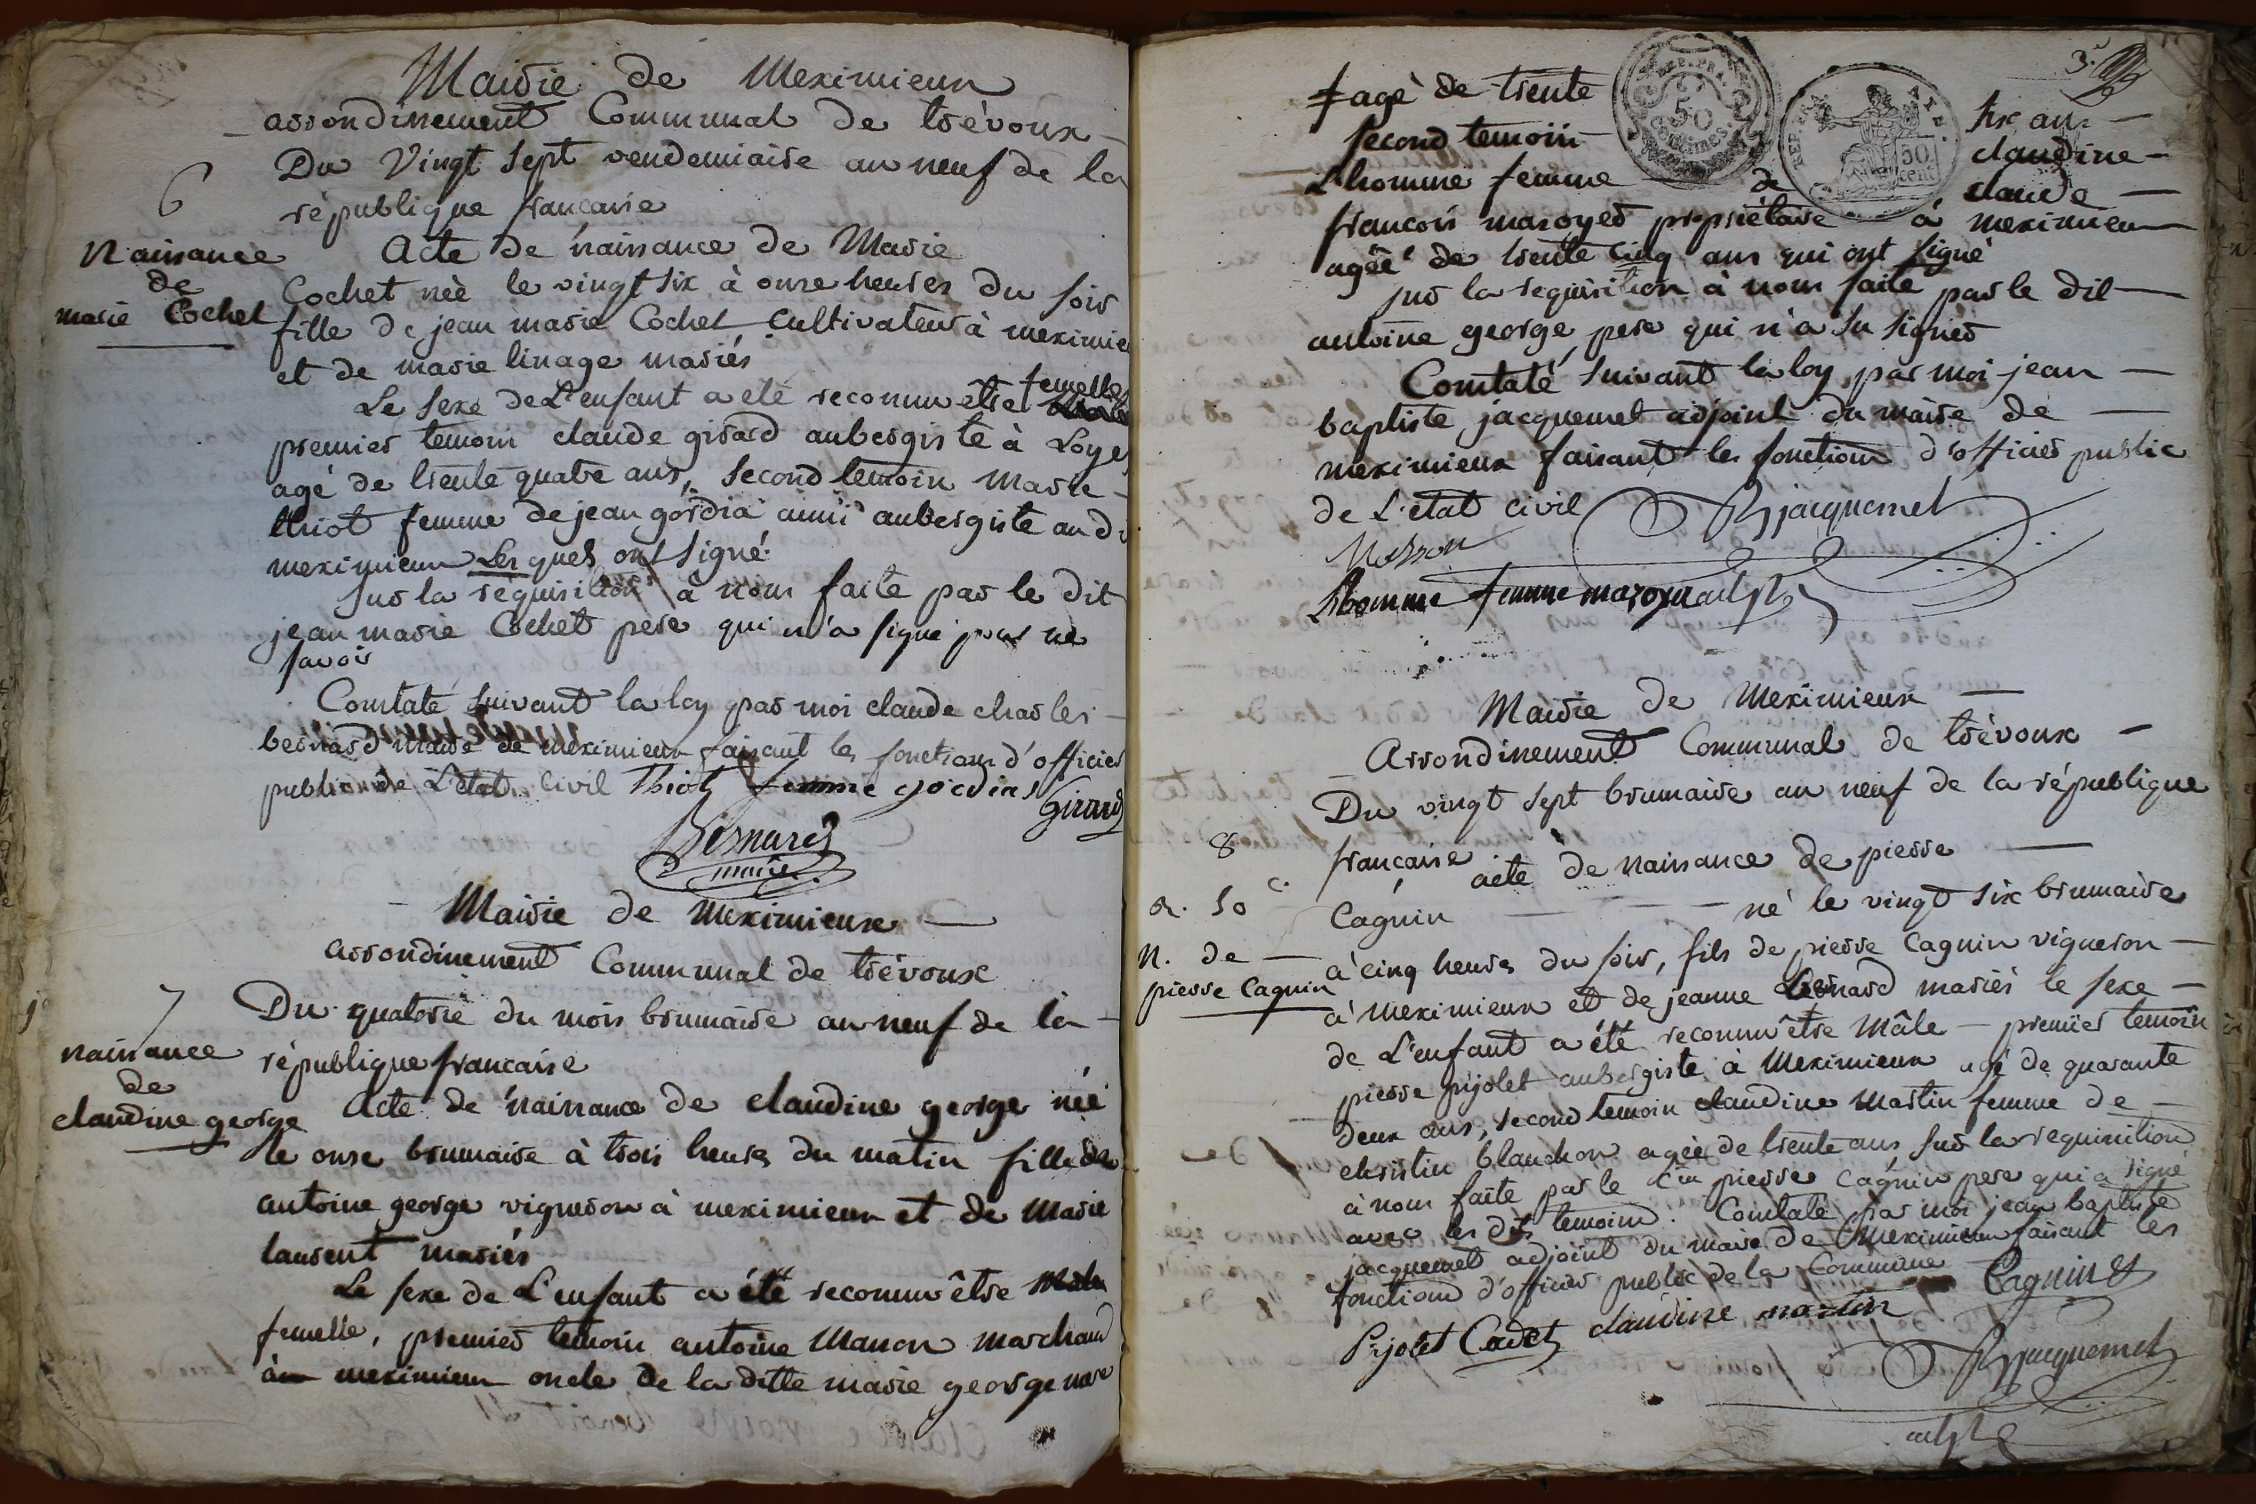 Mairie de Meximieux
arrondinement Communal de trévoux
6
Du Vingt sept vendemiaire an neuf de la
république francaise
Naissance
de
marie Cochet
Acte de naissance de Marie
Cochet née le vingt six à onze heures du soir
fille de jean marie Cochet Cultivateur à meximie
et de marie linage mariés
Le sexe de L'enfant a été reconnu être femelle
premier temoin claude girard aubergiste à Loye
agé de trente quatre ans, second temoin marie
thiot femme de jean gordia aussi aubergiste au d
meximieux Les quels ont signé
sur la requisition à nous faite par le dit
jean marie Cochet pere qui n'a signé pour ne
savoir
Contaté suivant la loy par moi claude charles
bernard maire de meximieux faisant les fonctions d'officier
public de L'état civil Thiot femme gordias Girard
Bernard
maire
Mairie de Meximieux
arrondinement Communal de trévoux
7
Du quatorze du mois brumaire an neuf de la
république francaise
naissance
de
claudine george
Acte de naissance de claudine george née
le onze brumaire à trois heures du matin fille de
antoine george vigneron à meximieux et de Marie
laurent mariés
Le sexe de L'enfant a été reconnu être male
femelle, premier temoin antoine Masson marchand
à meximieux oncle de la ditte marie george
3
agé de trente six ans
second temoin claudine
Lhomme femme de claude
francois mazoyer propriétaire à meximieux
agée de trente cinq ans qui ont signé
sur la requisition à nous faite par le dit
antoine george pere qui n'a su signer
Contaté suivant la loy par moi jean
baptiste jacquemet adjoint du maire de
meximieux faisant les fonctions d'officier public
de L'état civil Jacquemet
Masson
Lhomme femme mazoyer adjt
REP. FRA.
50
CENTIMES
REP. FRA.
50
cent
Mairie de Meximieux
Arrondinement Communal de trévoux
Du vingt sept brumaire an neuf de la république
8
francaise acte de naissance de pierre
Cagnin né le vingt six brumaire
N. de
pierre Cagnin
à cinq heures du soir, fils de pierre Cagnin vigneron
à meximieux et de jeanne bernard mariés le sexe
de L'enfant a été reconnu être Mâle premier temoin
pierre pijolet aubergiste à Meximieux agé de quarante
deux ans, second temoin claudine Martin femme de
christin blanchon agée de trente ans sur la requisition
à nous faite par le Cen pierre Cagnin pere qui a signé
avec les dits temoins. Contaté par moi jean baptiste
jacquemet adjoint du maire de Meximieux faisant les
fonctions d'officier public de la Commune Cagnin
Pijolet Cadet claudine martin
Jacquemet
adjt